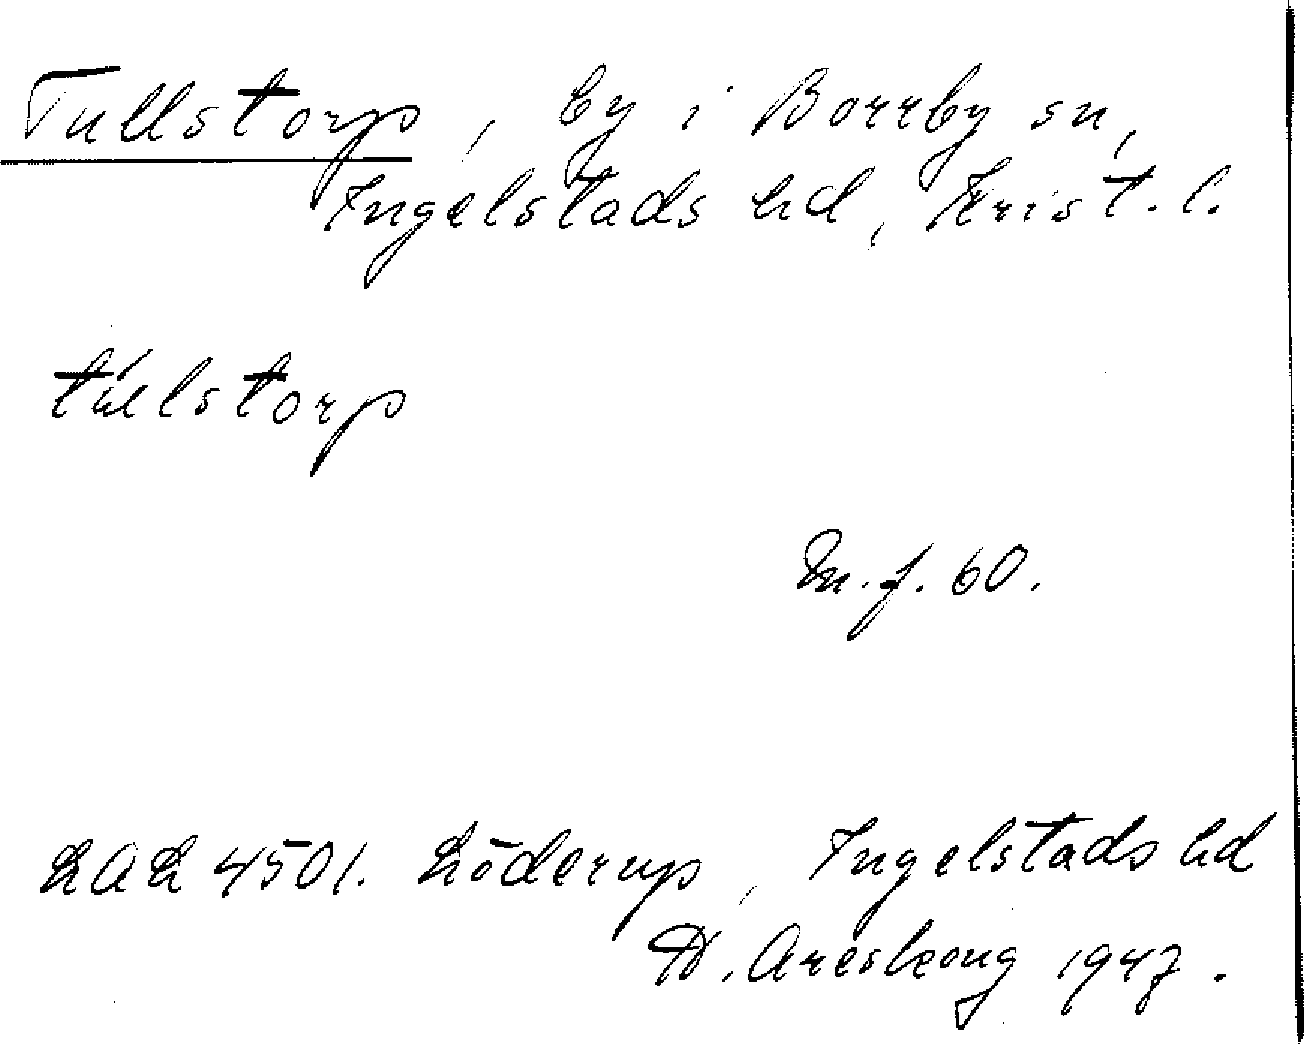 Tullstorp, by i Borrby sn,
Ingelstads hd, Krist. l.
túlstorp
M.f. 60.
LAL 4501. Löderup, Ingelstads hd
H. Areskoug 1947.